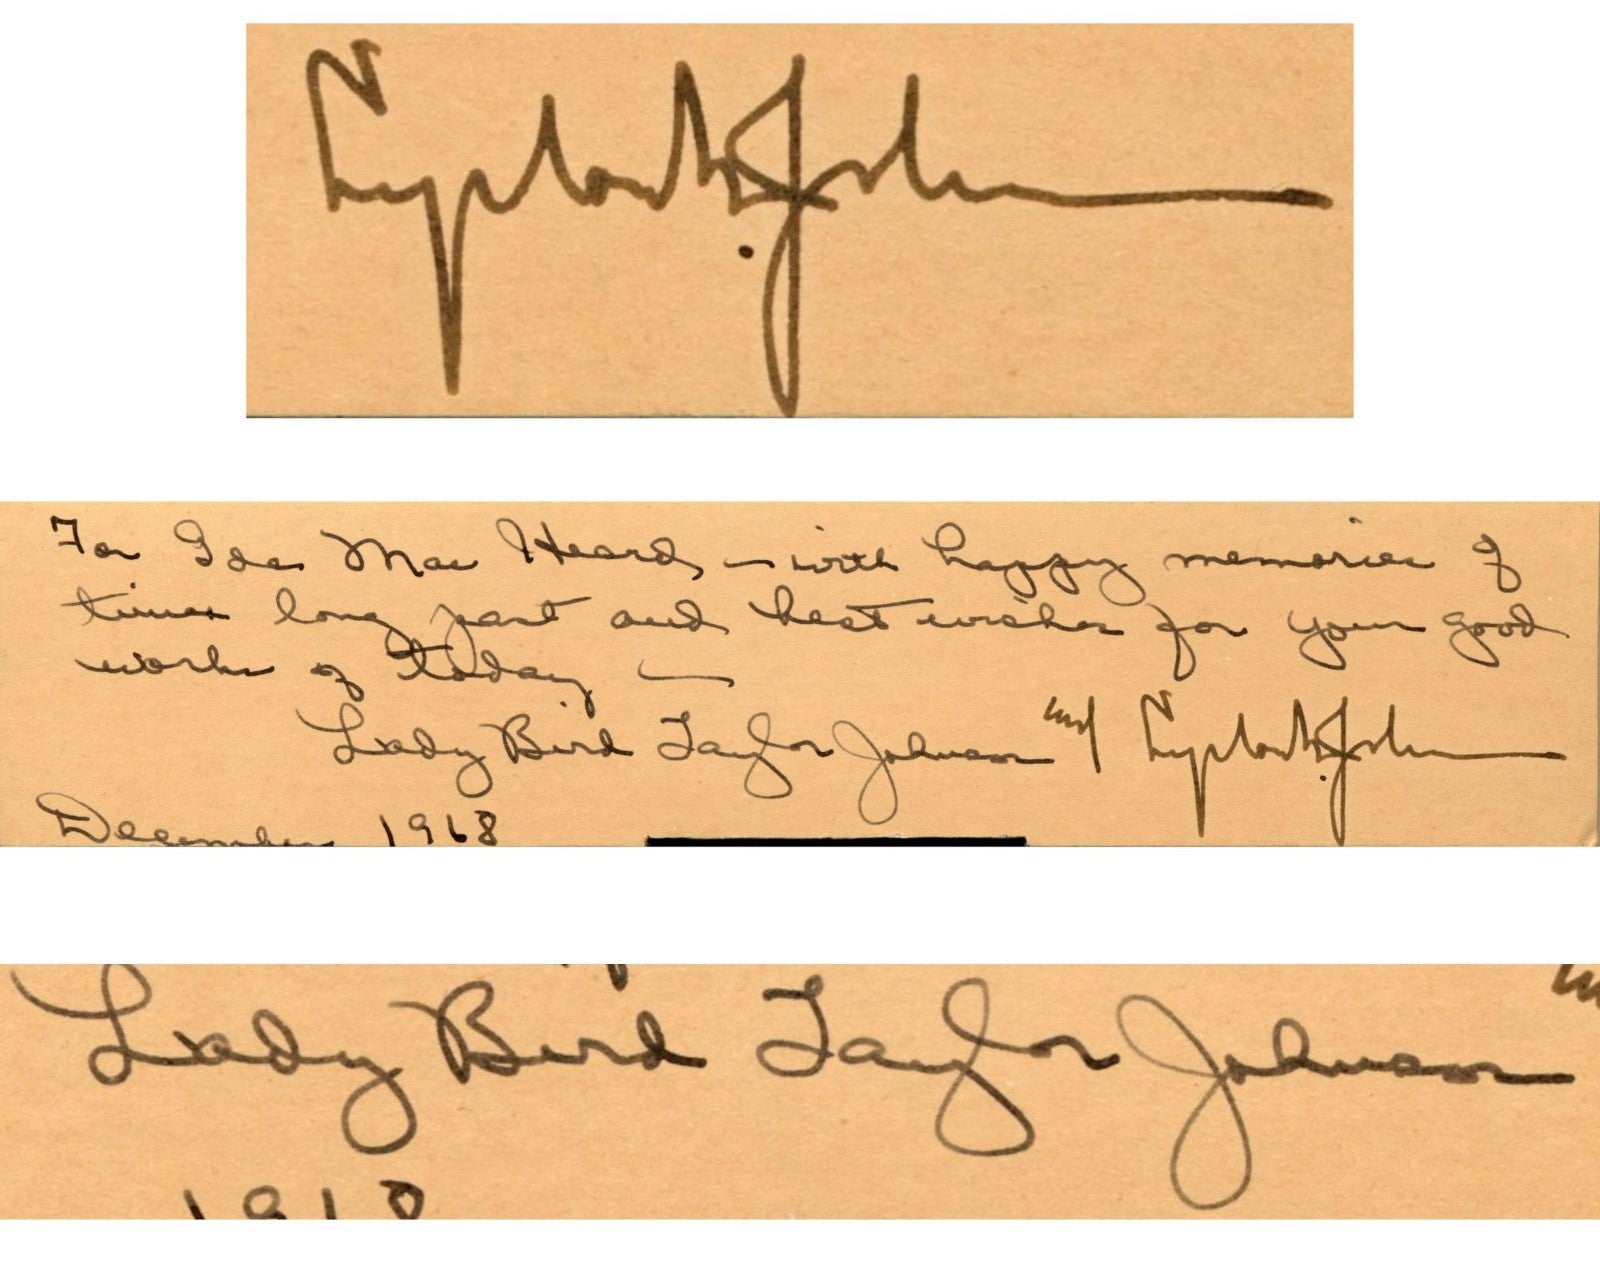 Lyndon B. Johnson
For Ida Mae Heard, — with happy memories of
times long past and best wishes for your good
works of today —
Lady Bird Taylor Johnson and Lyndon B. Johnson
December 1968
Lady Bird Taylor Johnson
1968